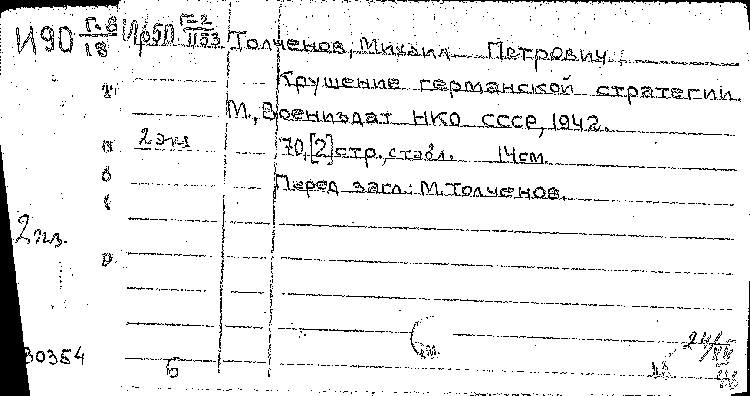 И90 Г.8/18 Ир50 Г-2/1153 Толченов, Михаил Петрович.
Крушение германской стратегии.
М., Воениздат НКО СССР, 1942.
2 экз 70,[2] стр., с табл. 14 см.
Перед загл.: М. Толченов.
2 экз.
30354 Б